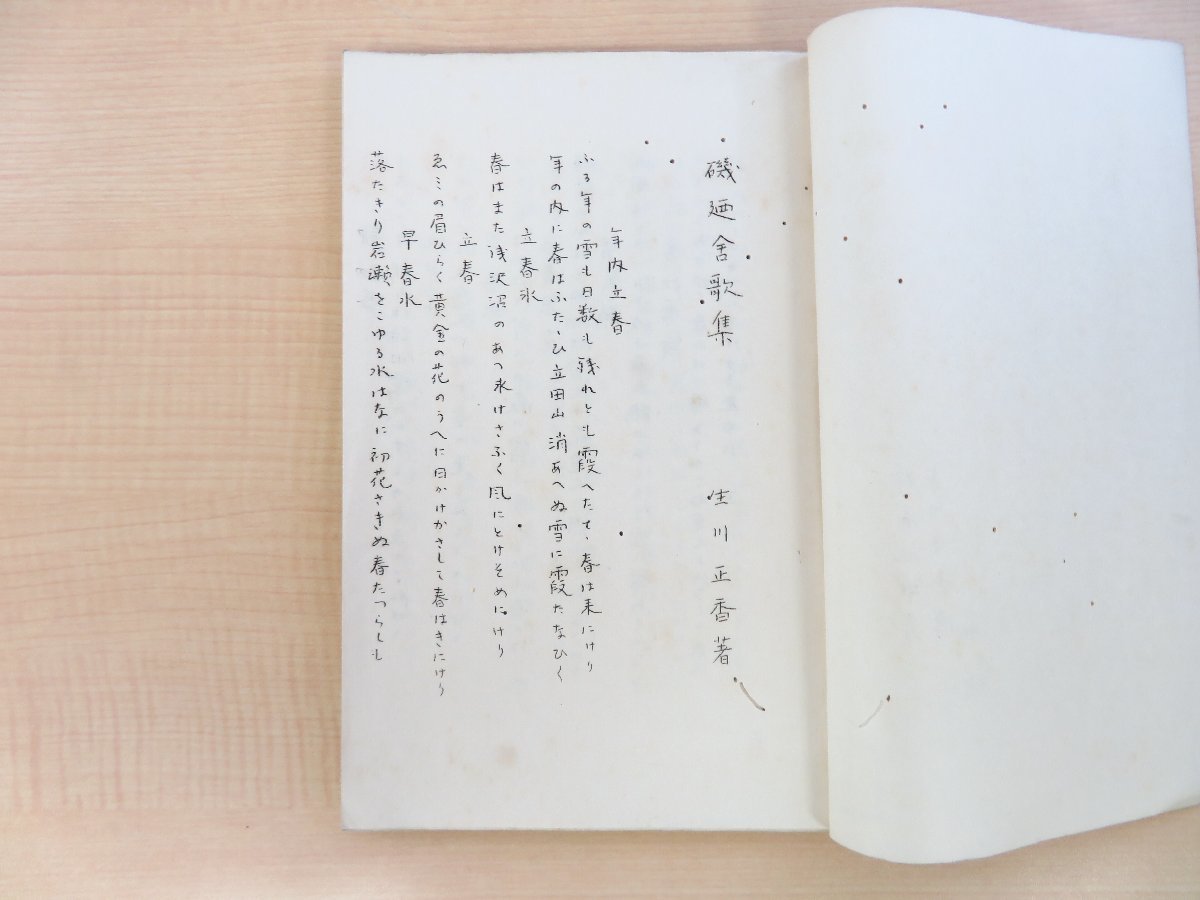 磯廼舎歌集
生川正香著
年内立春
ふる年の雪も日数も残れとも霞へたてゝ春は来にけり
年の内に春はふたゝひ立田山消あへぬ雪に霞たなひく
立春氷
春はまた浅沢沼のあつ氷けさふく風にとけそめにけり
立春
ゑミの眉ひらく黄金の花のうへに日かけかさして春はきにけり
早春水
落たきり岩瀬をこゆる水はなに初花さきぬ春たつらしも